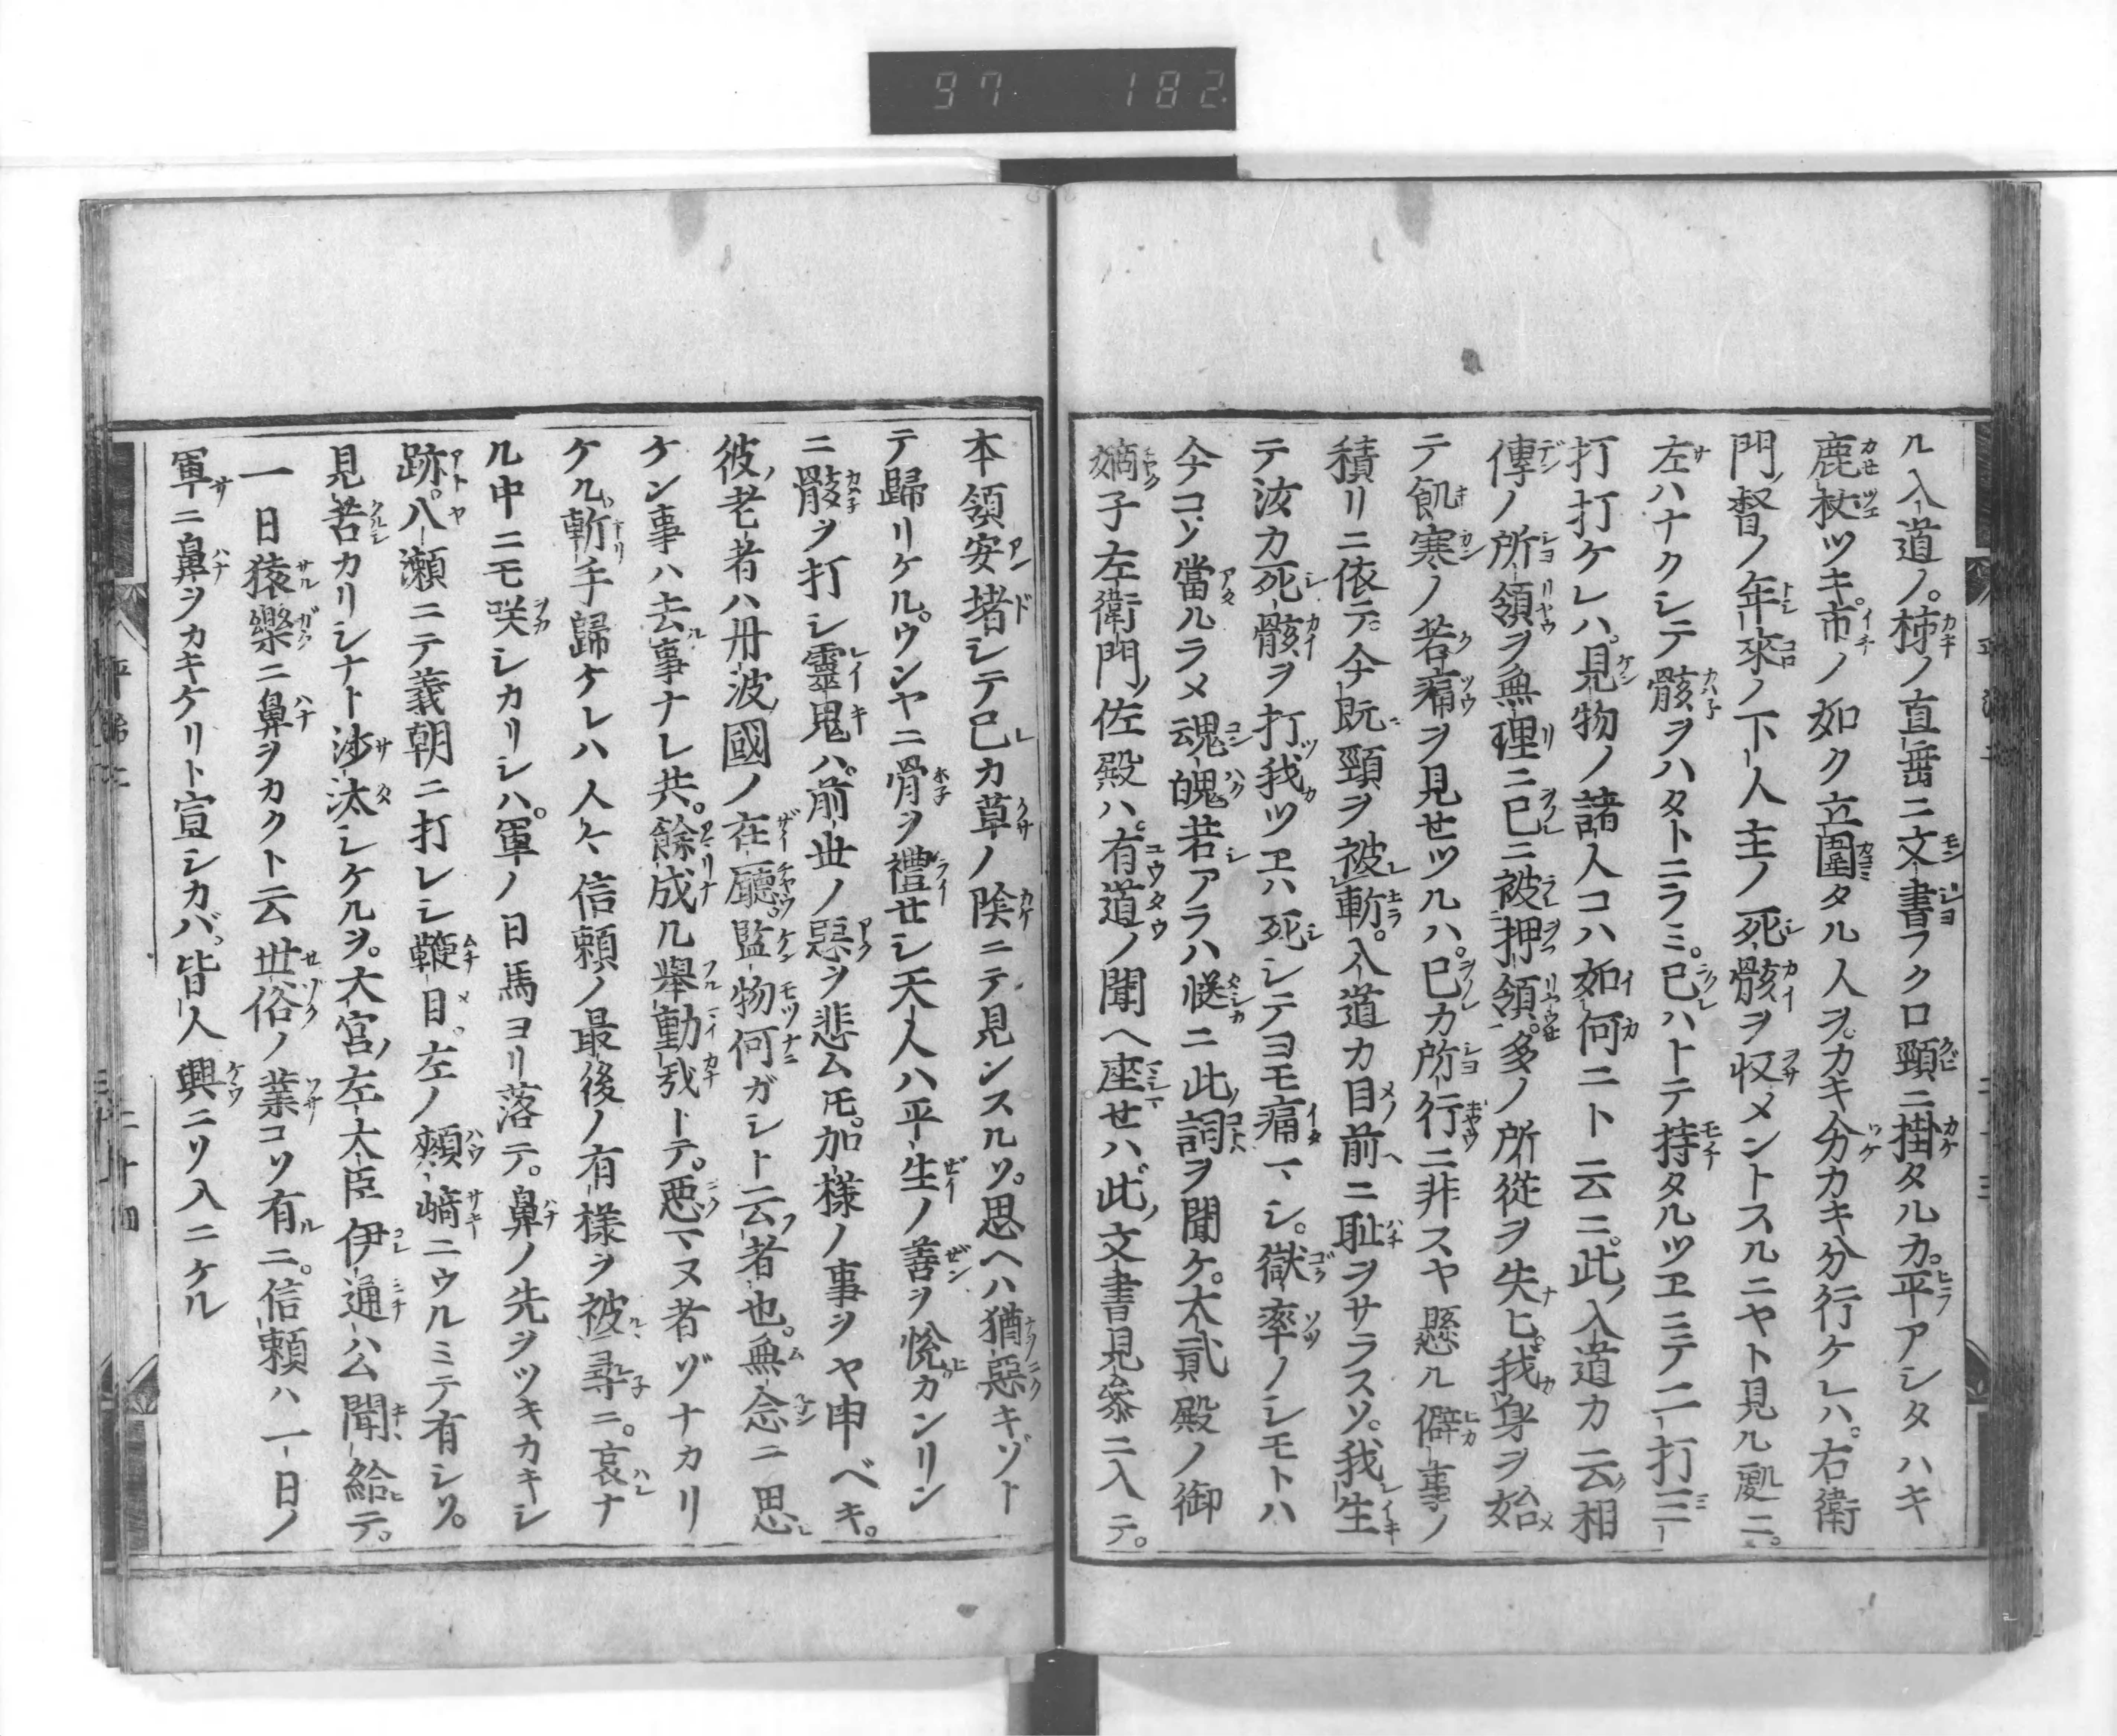 97 182
ル入道ノ。柿ノ直垂ニ文書フクロ頸ニ掛タルカ。平アシタハキ
鹿杖ツキ。市ノ如ク立圍タル人ヲ。カキ分カキ分行ケレハ。右衛
門督ノ年來ノ下人主ノ死骸ヲ収メントスルニヤト見ル處ニ。
左ハナクシテ骸ヲハタトニラミ。已ハトテ持タルツヱニテ二打三
打打ケレハ。見物ノ諸人コハ如何ニト云ニ。此入道カ云相
傳ノ所領ヲ無理ニ已ニ被押領。多ノ所從ヲ失ヒ。我身ヲ始
テ飢寒ノ苦痛ヲ見せツルハ。已カ所行ニ非スヤ懸ル僻事ノ
積リニ依テ。今既頸ヲ被斬。入道カ目前ニ耻ヲサラスソ。我生
テ汝カ死骸ヲ打。我ツヱハ死シテヨモ痛マシ。獄率ノシモトハ
今コソ當ルラメ魂魄若アラハ慥ニ此詞ヲ聞ケ。大貳殿ノ御
嫡子左衛門佐殿ハ。有道ノ聞へ座せハ此文書見參ニ入テ。
本領安堵シテ已カ草ノ陰ニテ見ンスルソ。思へハ猶惡キゾト
テ歸リケル。ウンヤニ骨ヲ禮せシ天人ハ平生ノ善ヲ悅ガンリン
ニ骸ヲ打シ靈鬼ハ。前世ノ惡ヲ悲ム𪜈。加樣ノ事ヲヤ申ベキ。
彼老者ハ丹波國ノ在廳。監物何ガシト云者也。無念ニ思
ケン事ハ去事ナレ共。餘成ル舉動哉トテ。惡マヌ者ゾナカリ
ケル。斬手歸ケレハ人々信頼ノ最後ノ有樣ヲ被尋ニ。哀ナ
ル中ニモ咲シカリシハ。軍ノ日馬ヨリ落テ。鼻ノ先ヲツキカキシ
跡。八瀬ニテ義朝ニ打レシ鞭目。左ノ頰﨑ニウルミテ有シソ。
見苦カリシナト沙汰シケルヲ。大宮左大臣伊通公聞給テ。
一日猿樂ニ鼻ヲカクト云世俗ノ業コソ有ニ。信頼ハ一日ノ
軍ニ鼻ヲカキケリト宣シカバ。皆人興ニソ入ニケル